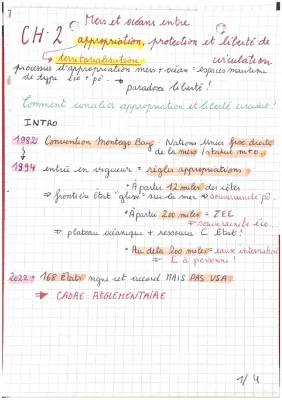 Mers et océans entre
CH.2 appropriation, protection et liberté de
circulation
→ territorialisation
processus d'appropriation mers + océan = espaces maritime
de type éco + po.
→ paradoxe liberté !
Comment concilier appropriation et liberté circulat° ?
INTRO
1982 Convention Montego Bay : Nations Unies fixe droits
de la mers / statut m+o.
1994 entrée en vigueur = règles appropriations
• A partir 12 miles des côtes
⇒ frontière Etat "glisse" sur la mer → souveraineté po.
• A partir 200 miles = ZEE
→ souveraineté éco
⇒ plateau océanique + ressources C Etat !
• Au delà 200 miles = eaux internation
⇒ à personne !
2022 • 168 Etats signe cet accord MAIS PAS USA.
→ CADRE REGLEMENTAIRE
1/4